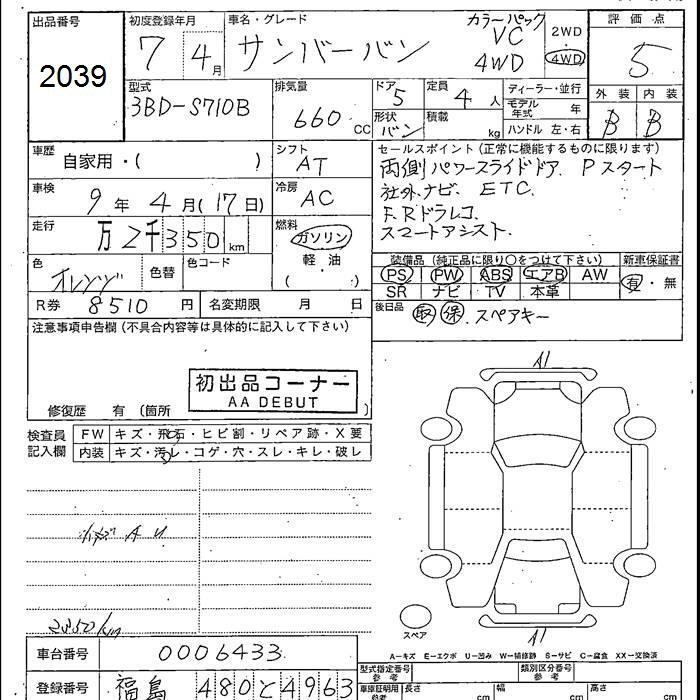 出品番号 初度登録年月 車名・グレード 評価点
2039 7 4月 サンバーバン カラーパック VC 4WD 2WD 4WD 5
型式 排気量 ドア 定員 ディーラー・並行 外装 内装
3BD-S710B 660 CC 5 4 人 モデル年式 年 B B
形状 バン 積載 kg ハンドル 左・右
車歴 自家用・( ) シフト AT セールスポイント (正常に機能するものに限ります)
両側パワースライドドア. Pスタート
車検 9年 4月(17日) 冷房 AC 社外ナビ. ETC.
F.Rドラレコ.
走行 万2千350 km 燃料 ガソリン スマートアシスト.
軽・油
( )
装備品 (純正品に限り○をつけて下さい) 新車保証書
色 オレンジ 色替 色コード PS PW ABS エアB AW 有・無
SR ナビ TV 本革
R券 8510 円 名変期限 月 日 後日品 取 保 スペアキー
注意事項申告欄 (不具合内容等は具体的に記入して下さい)
初出品コーナー
AA DEBUT
修復歴 有 (箇所 )
A1
検査員 FW キズ・飛石・ヒビ割・リペア跡・X要
記入欄 内装 キズ・汚レ・コゲ・穴・スレ・キレ・破レ
スペア
A1
A-キズ E-エクボ U-凹み W-補修跡 S-サビ C-腐食 XX-交換済
車台番号 0006433
型式指定番号 参考 類別区分番号 参考
登録番号 福島 480 と 4963
車庫証明用 参考 長さ cm 幅 cm 高さ cm